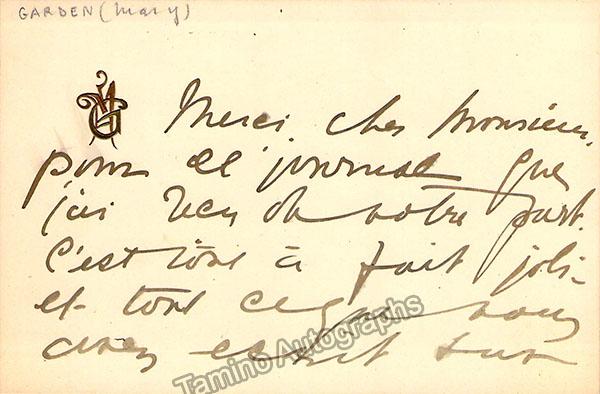 GARDEN (Mary)
MG
Merci, cher Monsieur,
pour le journal que
j'ai reçu de votre part.
C'est tout à fait joli-
et tout ce que vous
avez écrit sur
Tamino Autographs